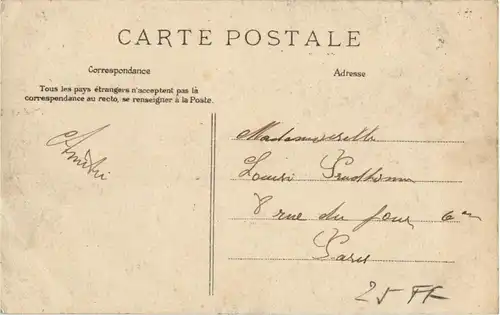 CARTE POSTALE
Correspondance
Adresse
Tous les pays étrangers n'acceptent pas la
correspondance au recto, se renseigner à la Poste.
Amitié
Mademoiselle
Louise Prudhomme
8 rue du four 6e
Paris
25 FF